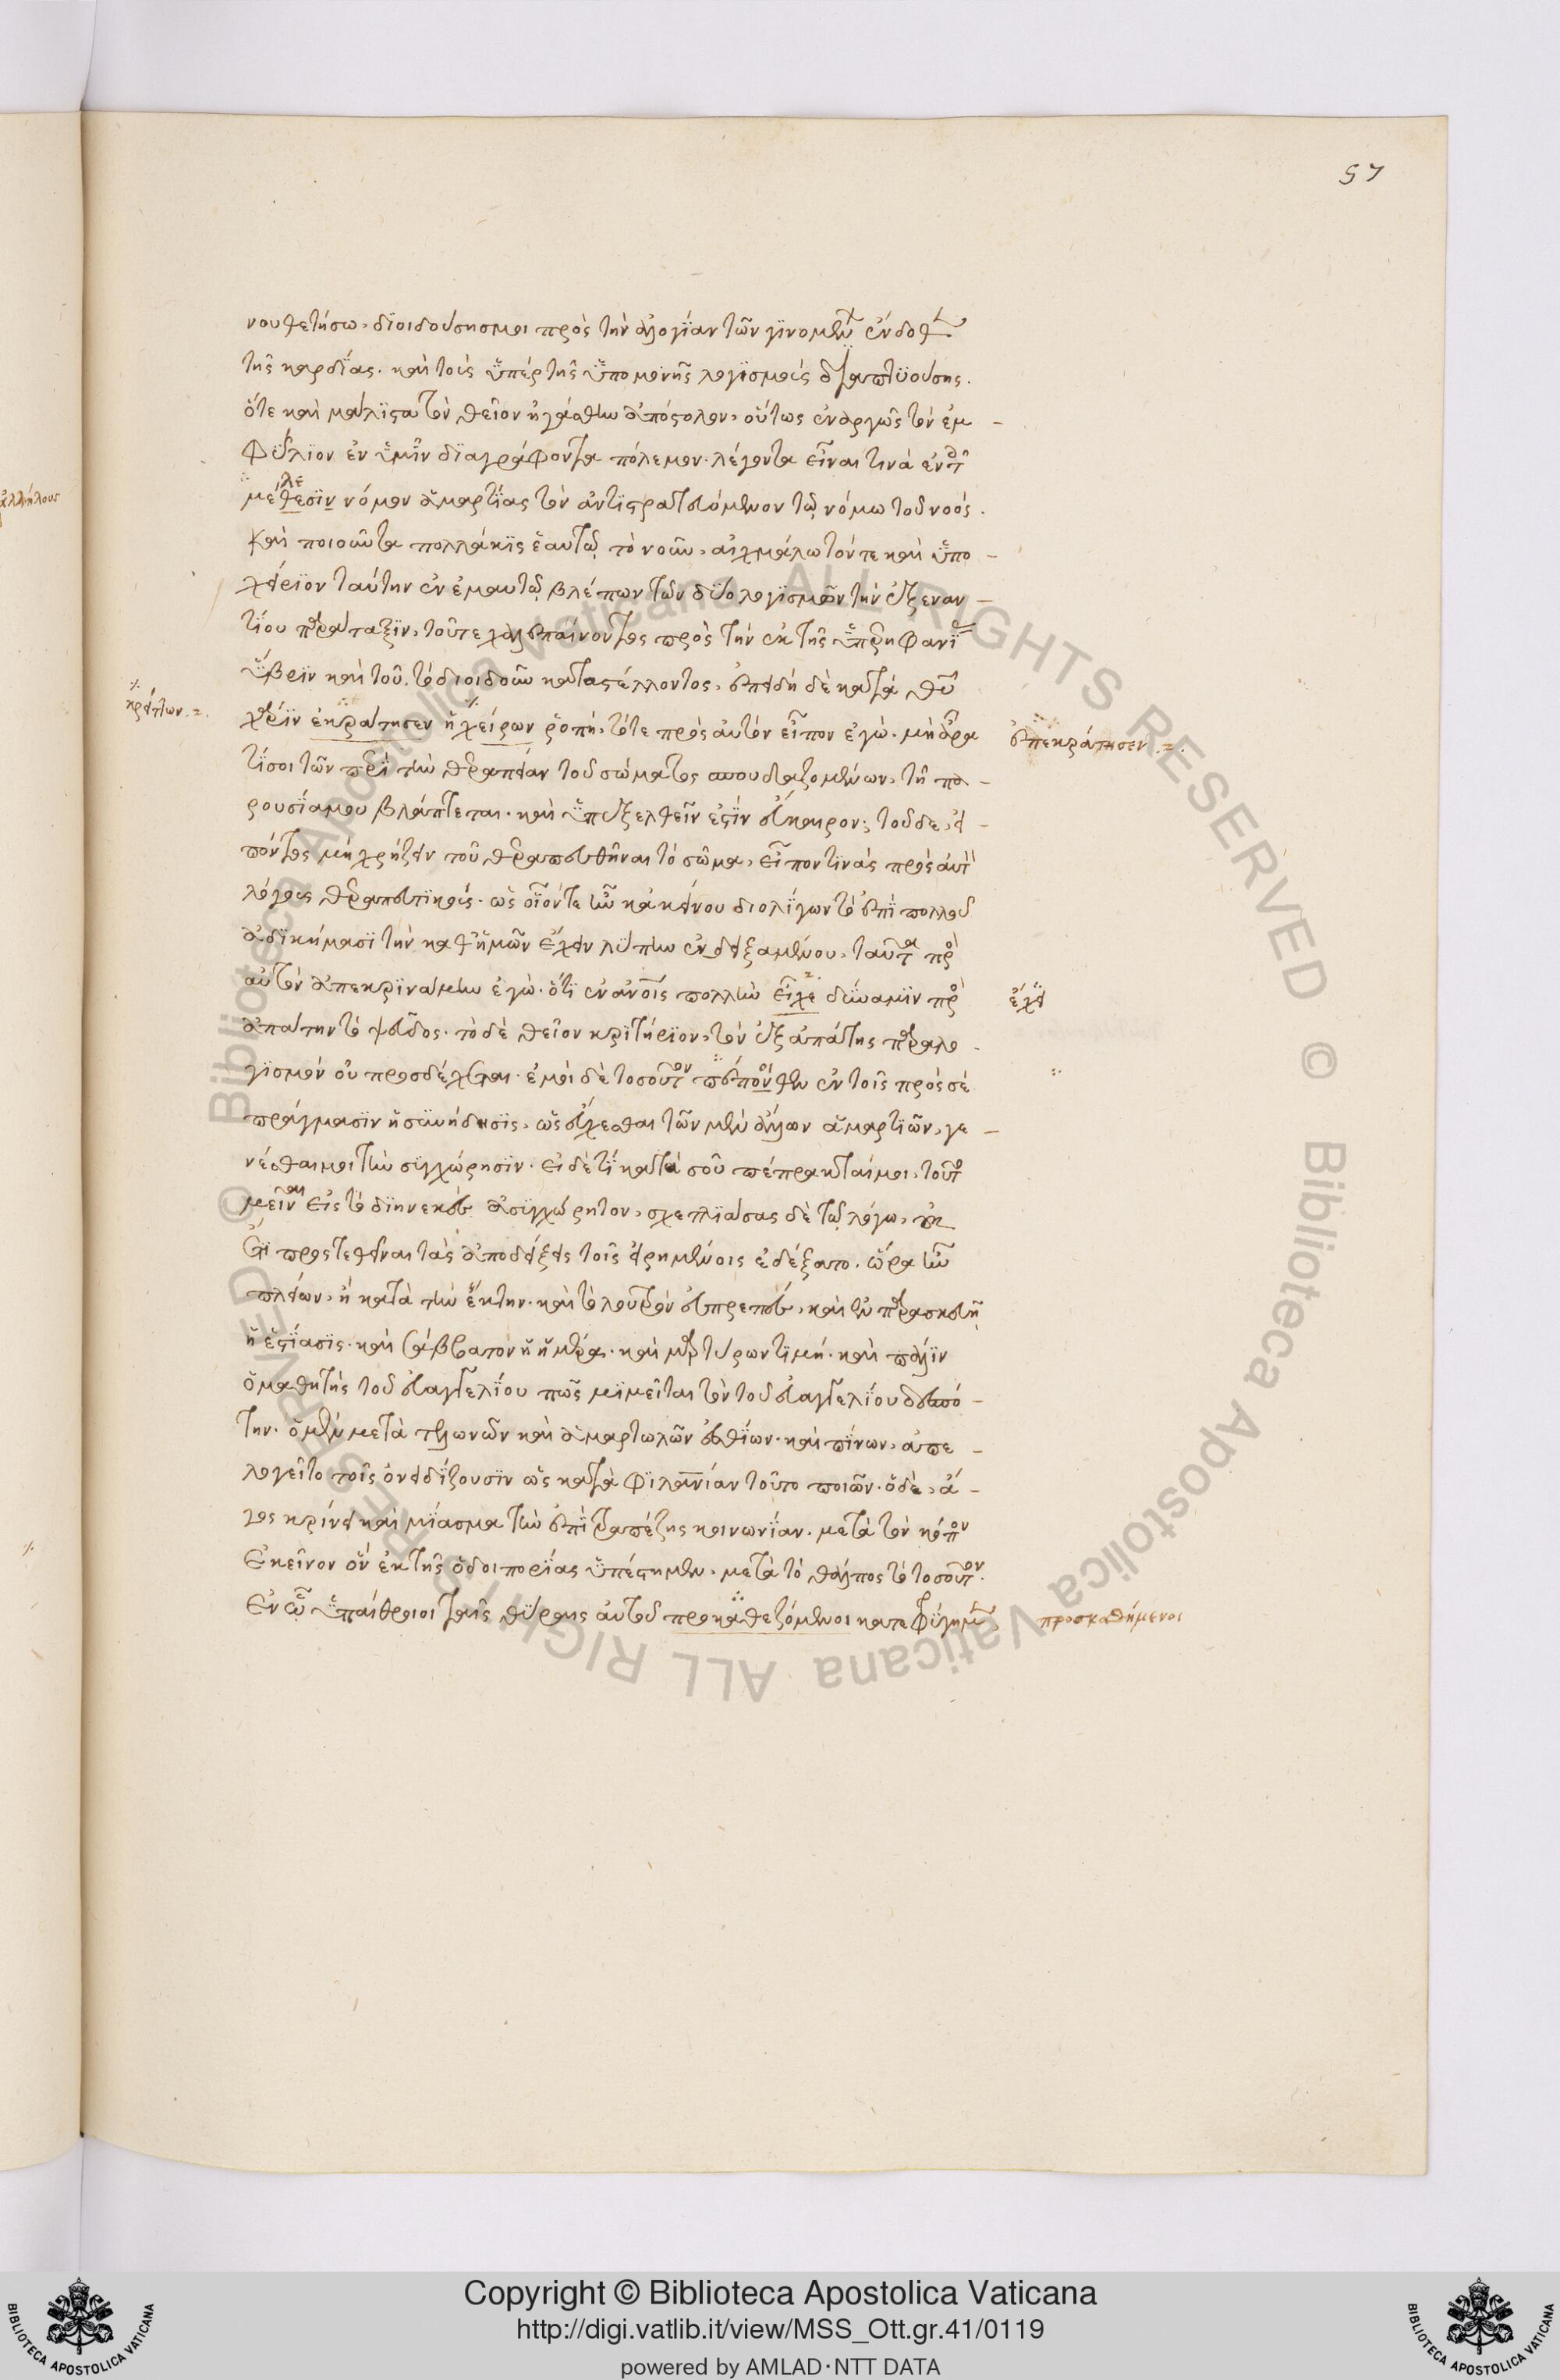 57
νουθετήσω, διοιδούσης μοι πρὸς τὴν ἀλογίαν τῶν γινομένων ἔνδοθεν
τῆς καρδίας. καὶ τοῖς ὑπὲρ τῆς ὑπομονῆς λογισμοῖς διαπτυούσης.
ὅτε καὶ μάλιστα τὸν θεῖον ἠγάσθην ἀπόστολον, οὕτως ἐναργῶς τὸν ἐμ-
φύλιον ἐν ὑμῖν διαγράφοντα πόλεμον. λέγοντα εἶναί τινα ἐν τῆ
μέθεσιν νόμον ἁμαρτίας τὸν ἀντιστρατευόμενον τῷ νόμω τοῦ νοός.
Καὶ ποιοῦντα πολλάκις ἑαυτῷ τὸ νοῦν, αἰχμάλωτόν τε καὶ ὑπο-
χείριον ταύτην ἐν ἐμαυτῷ βλέπων τῶν δύο λογισμῶν τὴν ἐξ ἐναν-
τίου παράταξιν, τοῦ τε χαλεπαίνοντος πρὸς τὴν ἐκ τῆς ὑπερηφανίας
ὕβριν καὶ τοῦ τὸ διοιδοῦν καταστέλλοντος, ἐπειδὴ δὲ κατὰ θεοῦ
χάριν ἐκράτησεν ἡ χείρων ῥοπὴ, τότε πρὸς αὐτὸν εἶπον ἐγὼ. μὴ ἄρα
τί σοι τῶν περὶ τὴν θεραπείαν τοῦ σώματος σπουδαζομένων, τῆ πα-
ρουσία μου βλάπτεται. καὶ ὑπεξελθεῖν ἐστὶν εὔκαιρον; τοῦ δὲ, εἰ-
πόντος μὴ χρήζειν τοῦ θεραπευθῆναι τὸ σῶμα, εἶπόν τινας πρὸς αὐτὸν
λόγους θεραπευτικοὺς. ὡς οἷόν τε ἦν κἀκείνου δι ὀλίγων τὸ ἐπὶ πολλοῖς
ἀδικήμασι τὴν καθ ἡμῶν ἔχειν λύπην ἐνδειξαμένου, ταῦτα πρὸς
αὐτὸν ἀπεκρινάμην ἐγὼ. ὅτι ἐν ἀνοις πολλὴν εἶχε δύναμιν πρὸς
ἀπάτην τὸ ψεῦδος. τὸ δὲ θεῖον κριτήριον, τὸν ἐξ ἀπάτης παραλο-
γισμὸν οὐ προσδέχεται. ἐμοὶ δὲ τοσοῦτον πέπονθεν ἐν τοῖς πρὸς σὲ
πράγμασιν ἡ συνείδησις, ὡς εὔχεσθαι τῶν μὲν ἄλλων ἁμαρτιῶν, γε-
νέσθαι μοι τὴν συγχώρησιν. εἰ δέ τι κατὰ σοῦ πέπρακταί μοι, τοῦτο
μεῖναι εἰς τὸ διηνεκὲς ἀσυγχώρητον, σχετλιάσας δὲ τῷ λόγω, οὐκ
ἔτι προστεθῆναι τὰς ἀποδείξεις τοῖς εἰρημένοις ἐδέξατο. ὥρα ἦν
πλείων, ἢ κατὰ τὴν ἕκτην. καὶ τὸ λουτρὸν εὐπρεπὲς, καὶ ἐν παρασκευῆ
ἡ ἑστίασις. καὶ σάββατον ἡ ἡμέρα. καὶ μαρτύρων τιμή. καὶ πάλιν
ὁ μαθητὴς τοῦ εὐαγγελίου πῶς μιμεῖται τὸν τοῦ εὐαγγελίου δεσπό-
την. ὁ μὲν μετὰ τελωνῶν καὶ ἁμαρτωλῶν ἐσθίων. καὶ πίνων, ἀπε-
λογεῖτο τοῖς ὀνειδίζουσιν ὡς κατὰ φιλανίαν τοῦτο ποιῶν. ὁ δὲ, ἄ-
γος κρίνει καὶ μίασμα τὴν ἐπὶ τραπέζης κοινωνίαν. μετὰ τὸν κόπον
Ἐκεῖνον ὃν ἐκ τῆς ὁδοιπορίας ὑπέστημεν. μετὰ τὸ θάλπος τὸ τοσοῦτον.
Ἐν ᾧ ὑπαίθριοι ταῖς θύραις αὐτοῦ προκαθεζόμενοι κατεφλύγημεν,
ἀλλήλους
κρείττων
ἐπεκράτησεν
ἔχει
προσκαθήμενοι
Copyright © Biblioteca Apostolica Vaticana
http://digi.vatlib.it/view/MSS_Ott.gr.41/0119
powered by AMLAD·NTT DATA
© Biblioteca Apostolica Vaticana ALL RIGHTS RESERVED
© Biblioteca Apostolica Vaticana ALL RIGHTS RESERVED
BIBLIOTECA APOSTOLICA VATICANA
BIBLIOTECA APOSTOLICA VATICANA